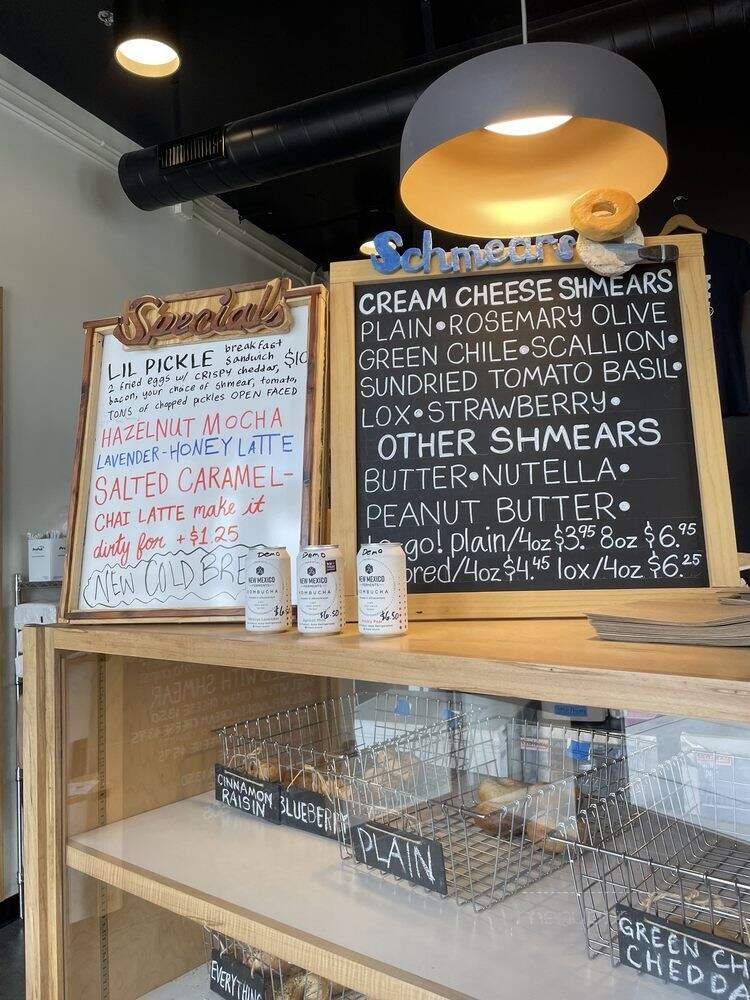 Specials
LIL PICKLE breakfast sandwich
2 fried eggs w/ crispy cheddar,
bacon, your choice of shmear, tomato,
TONS of chopped pickles OPEN FACED
HAZELNUT MOCHA
LAVENDER-HONEY LATTE
SALTED CARAMEL-
CHAI LATTE make it
dirty for +$1.25
NEW COLD BRE
Schmears
CREAM CHEESE SHMEARS
PLAIN•ROSEMARY OLIVE
GREEN CHILE•SCALLION•
SUNDRIED TOMATO BASIL•
LOX•STRAWBERRY•
OTHER SHMEARS
BUTTER•NUTELLA•
PEANUT BUTTER•
go! plain/4oz $3.95 8oz $6.95
ored/4oz $4.45 lox/4oz $6.25
Demo
NEW MEXICO
KOMBUCHA
Demo
NEW MEXICO
KOMBUCHA
$6.50
Demo
NEW MEXICO
KOMBUCHA
$6.50
CINNAMON
RAISIN
BLUEBERRY
PLAIN
GREEN CH
CHEDDA
EVERYTHING